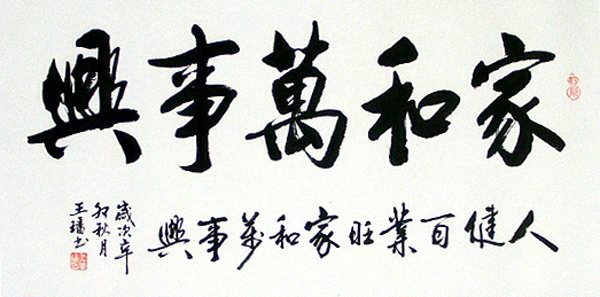 家和萬事興
人健百業旺家和萬事興
歲次辛
卯秋月
王書